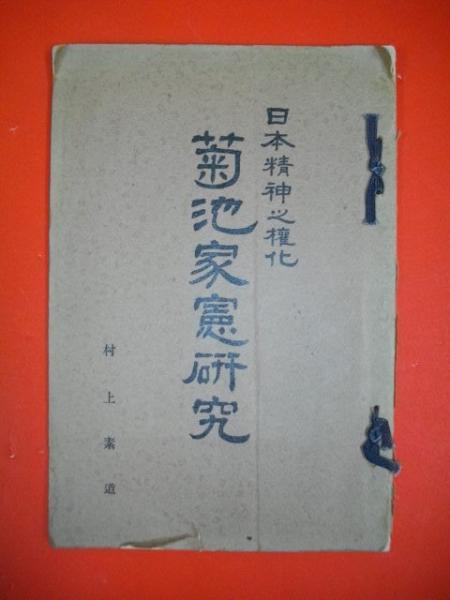 日本精神之權化
菊池家憲研究
村上素道